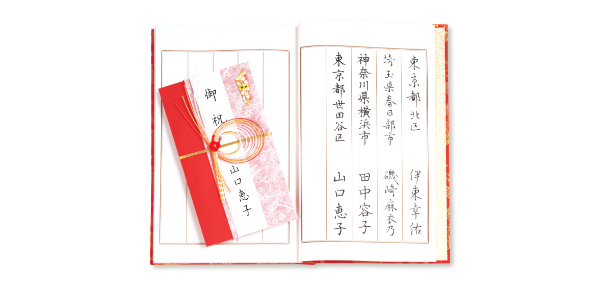 東京都北区
伊東幸佑
埼玉県春日部市
磯崎麻衣乃
神奈川県横浜市
田中容子
東京都世田谷区
山口恵子
御祝
山口恵子